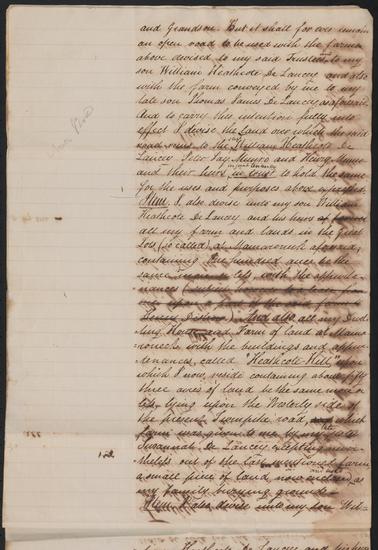 and Grandson. But it shall for ever remain
an open road to be used with the farm
above devised to my said Trustees to my
son William Heathcote De Lancey and also
with the farm conveyed by me to my
late son Thomas James De Lancey as aforesaid.
And to carry this intention fully into
effect I devise the land over which the said
road runs to the William Heathcote De
Lancey Peter Jay Munro and Henry Munro
in joint tenancy
and their heirs in trust to hold the same
for the uses and purposes above expressed.
Item, I also devise unto my son William
Heathcote De Lancey and his heirs
all my farm and lands in the Great
Lots (so called) at Mamaroneck aforesaid,
containing One hundred acres be the
same more or less with the appurte-
nances
And also all my Dwel-
ling House and Farm of land at Mama-
roneck with the buildings and appur-
tenances, called "Heathcote Hill" upon
which I now reside containing about fifty
three acres of land be the same more or
less lying upon the Westerly side of
the present Turnpike road, and which
farm was given to me by my late
Susannah De Lancey, excepting never-
theless out of the last mentioned farm
a small piece of land, now enclosed as
my family burying ground
Item I also devise unto my son Wil-